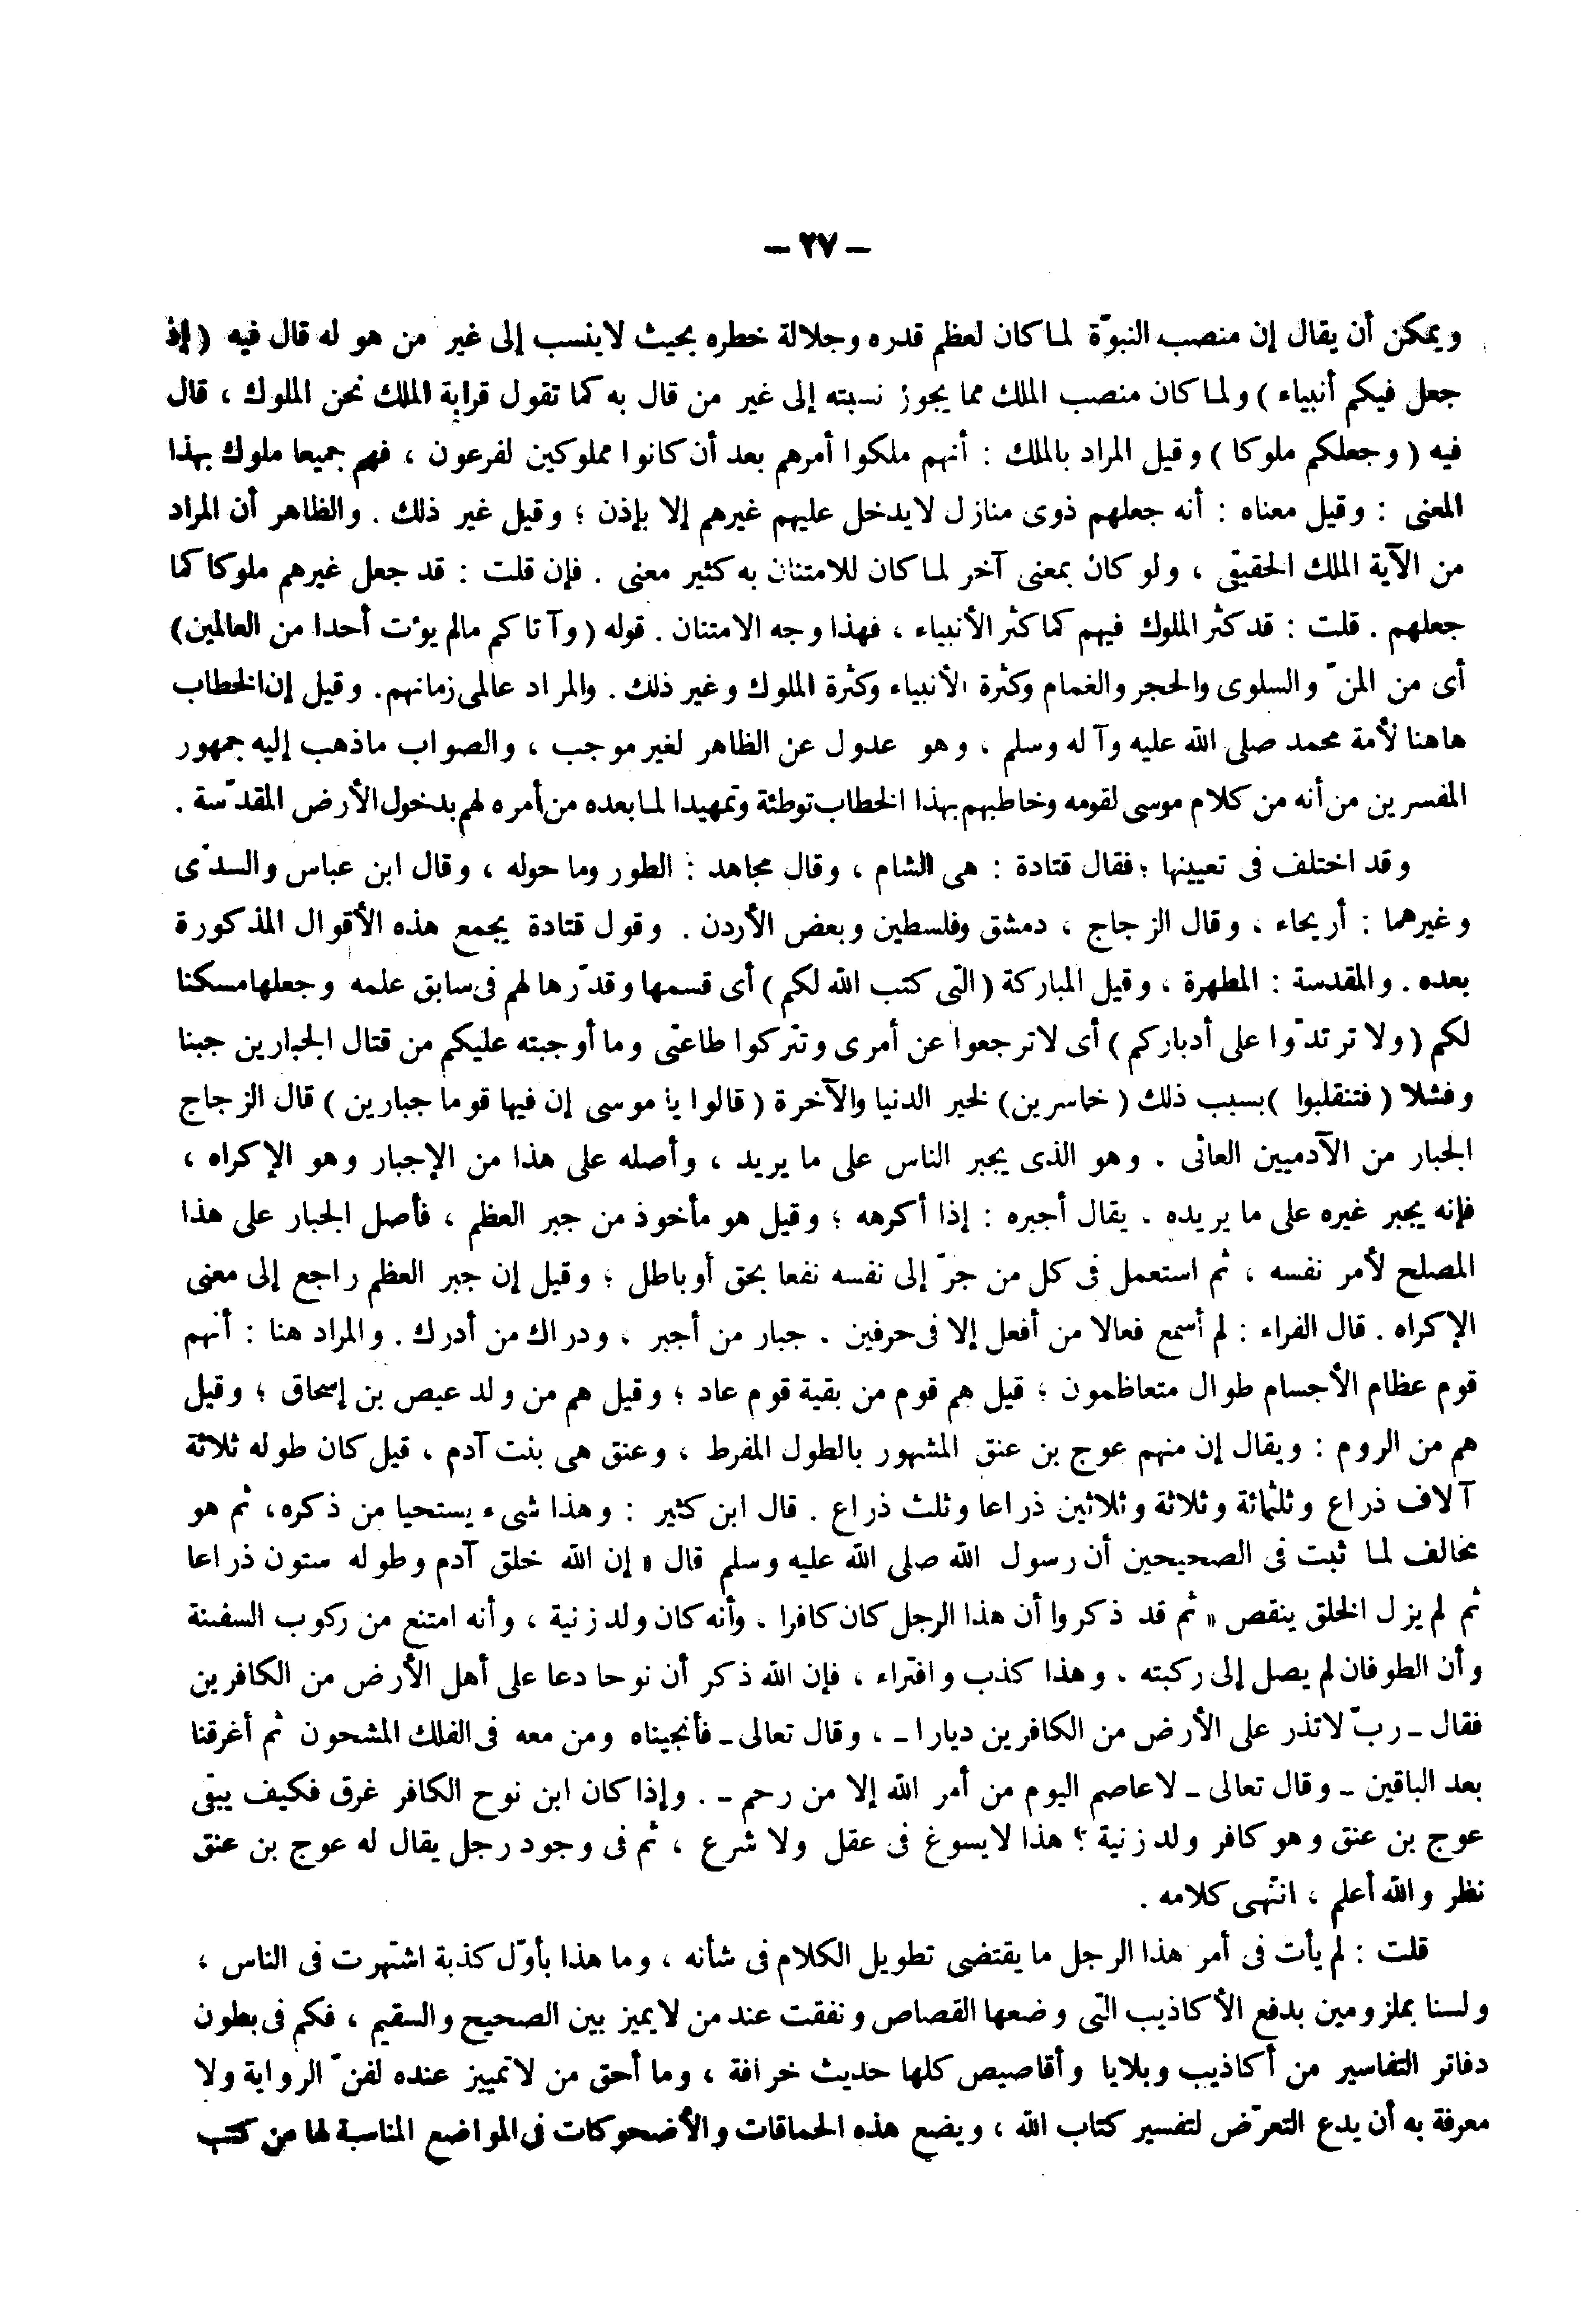 — ٢٧ —
ويمكن أن يقال إن منصب النبوّة لما كان لعظم قدره وجلالة خطره بحيث لاينسب إلى غير من هو له قال فيه ( إذ
جعل فيكم أنبياء ) ولما كان منصب الملك مما يجوز نسبته إلى غير من قال به كما تقول قرابة الملك نحن الملوك ، قال
فيه ( وجعلكم ملوكا ) وقيل المراد بالملك : أنهم ملكوا أمرهم بعد أن كانوا مملوكين لفرعون ، فهم جميعا ملوك بهذا
المعنى : وقيل معناه : أنه جعلهم ذوى منازل لايدخل عليهم غيرهم إلا بإذن ؛ وقيل غير ذلك . والظاهر أن المراد
من الآية الملك الحقيقى ، ولو كان بمعنى آخر لما كان للامتنان به كثير معنى . فإن قلت : قد جعل غيرهم ملوكا كما
جعلهم . قلت : قد كثر الملوك فيهم كما كثر الأنبياء ، فهذا وجه الامتنان . قوله ( وآتاكم مالم يؤت أحدا من العالمين)
أى من المنّ والسلوى والحجر والغمام وكثرة الأنبياء وكثرة الملوك وغير ذلك . والمراد عالمى زمانهم. وقيل إن الخطاب
هاهنا لأمة محمد صلى الله عليه وآله وسلم ، وهو عدول عن الظاهر لغير موجب ، والصواب ماذهب إليه جمهور
المفسرين من أنه من كلام موسى لقومه وخاطبهم بهذا الخطاب توطئة وتمهيدا لما بعده من أمره لهم بدخول الأرض المقدّسة .
وقد اختلف فى تعيينها ؛ فقال قتادة : هى الشام ، وقال مجاهد : الطور وما حوله ، وقال ابن عباس والسدّى
وغيرهما : أريحاء ، وقال الزجاج ، دمشق وفلسطين وبعض الأردن . وقول قتادة يجمع هذه الأقوال المذكورة
بعده . والمقدسة : المطهرة ، وقيل المباركة ( التى كتب الله لكم ) أى قسمها وقدّرها لهم فى سابق علمه وجعلها مسكنا
لكم ( ولا ترتدّوا على أدباركم ) أى لاترجعوا عن أمرى وتتركوا طاعتى وما أوجبته عليكم من قتال الجبارين جبنا
وفشلا ( فتنقلبوا )بسبب ذلك ( خاسرين) لخير الدنيا والآخرة ( قالوا يا موسى إن فيها قوما جبارين ) قال الزجاج
الجبار من الآدميين العاتى . وهو الذى يجبر الناس على ما يريد ، وأصله على هذا من الإجبار وهو الإكراه ،
فإنه يجبر غيره على ما يريده . يقال أجبره : إذا أكرهه ؛ وقيل هو مأخوذ من جبر العظم ، فأصل الجبار على هذا
المصلح لأمر نفسه ، ثم استعمل فى كل من جرّ إلى نفسه نفعا بحق أو باطل ؛ وقيل إن جبر العظم راجع إلى معنى
الإكراه . قال الفراء : لم أسمع فعالا من أفعل إلا فى حرفين . جبار من أجبر ، ودراك من أدرك . والمراد هنا : أنهم
قوم عظام الأجسام طوال متعاظمون ؛ قيل هم قوم من بقية قوم عاد ؛ وقيل هم من ولد عيص بن إسحاق ؛ وقيل
هم من الروم : ويقال إن منهم عوج بن عنق المشهور بالطول المفرط ، وعنق هى بنت آدم ، قيل كان طوله ثلاثة
آلاف ذراع وثلثمائة وثلاثة وثلاثين ذراعا وثلث ذراع . قال ابن كثير : وهذا شىء يستحيا من ذكره، ثم هو
مخالف لما ثبت فى الصحيحين أن رسول الله صلى الله عليه وسلم قال « إن الله خلق آدم وطوله ستون ذراعا
ثم لم يزل الخلق ينقص » ثم قد ذكروا أن هذا الرجل كان كافرا . وأنه كان ولد زنية ، وأنه امتنع من ركوب السفينة
وأن الطوفان لم يصل إلى ركبته . وهذا كذب وافتراء ، فإن الله ذكر أن نوحا دعا على أهل الأرض من الكافرين
فقال ـ ربّ لاتذر على الأرض من الكافرين ديارا ـ ، وقال تعالى ـ فأنجيناه ومن معه فى الفلك المشحون ثم أغرقنا
بعد الباقين ـ وقال تعالى ـ لاعاصم اليوم من أمر الله إلا من رحم ـ . وإذا كان ابن نوح الكافر غرق فكيف يبقى
عوج بن عنق وهو كافر ولد زنية ؟ هذا لايسوغ فى عقل ولا شرع ، ثم فى وجود رجل يقال له عوج بن عنق
نظر والله أعلم ، انتهى كلامه .
قلت : لم يأت فى أمر هذا الرجل ما يقتضى تطويل الكلام فى شأنه ، وما هذا بأوّل كذبة اشتهرت فى الناس ،
ولسنا بملزومين بدفع الأكاذيب التى وضعها القصاص ونفقت عند من لايميز بين الصحيح والسقيم ، فكم فى بطون
دفاتر التفاسير من أكاذيب وبلايا وأقاصيص كلها حديث خرافة ، وما أحق من لاتمييز عنده لفنّ الرواية ولا
معرفة به أن يدع التعرّض لتفسير كتاب الله ، ويضع هذه الحماقات والأضحوكات فى المواضع المناسبة لها من كتب